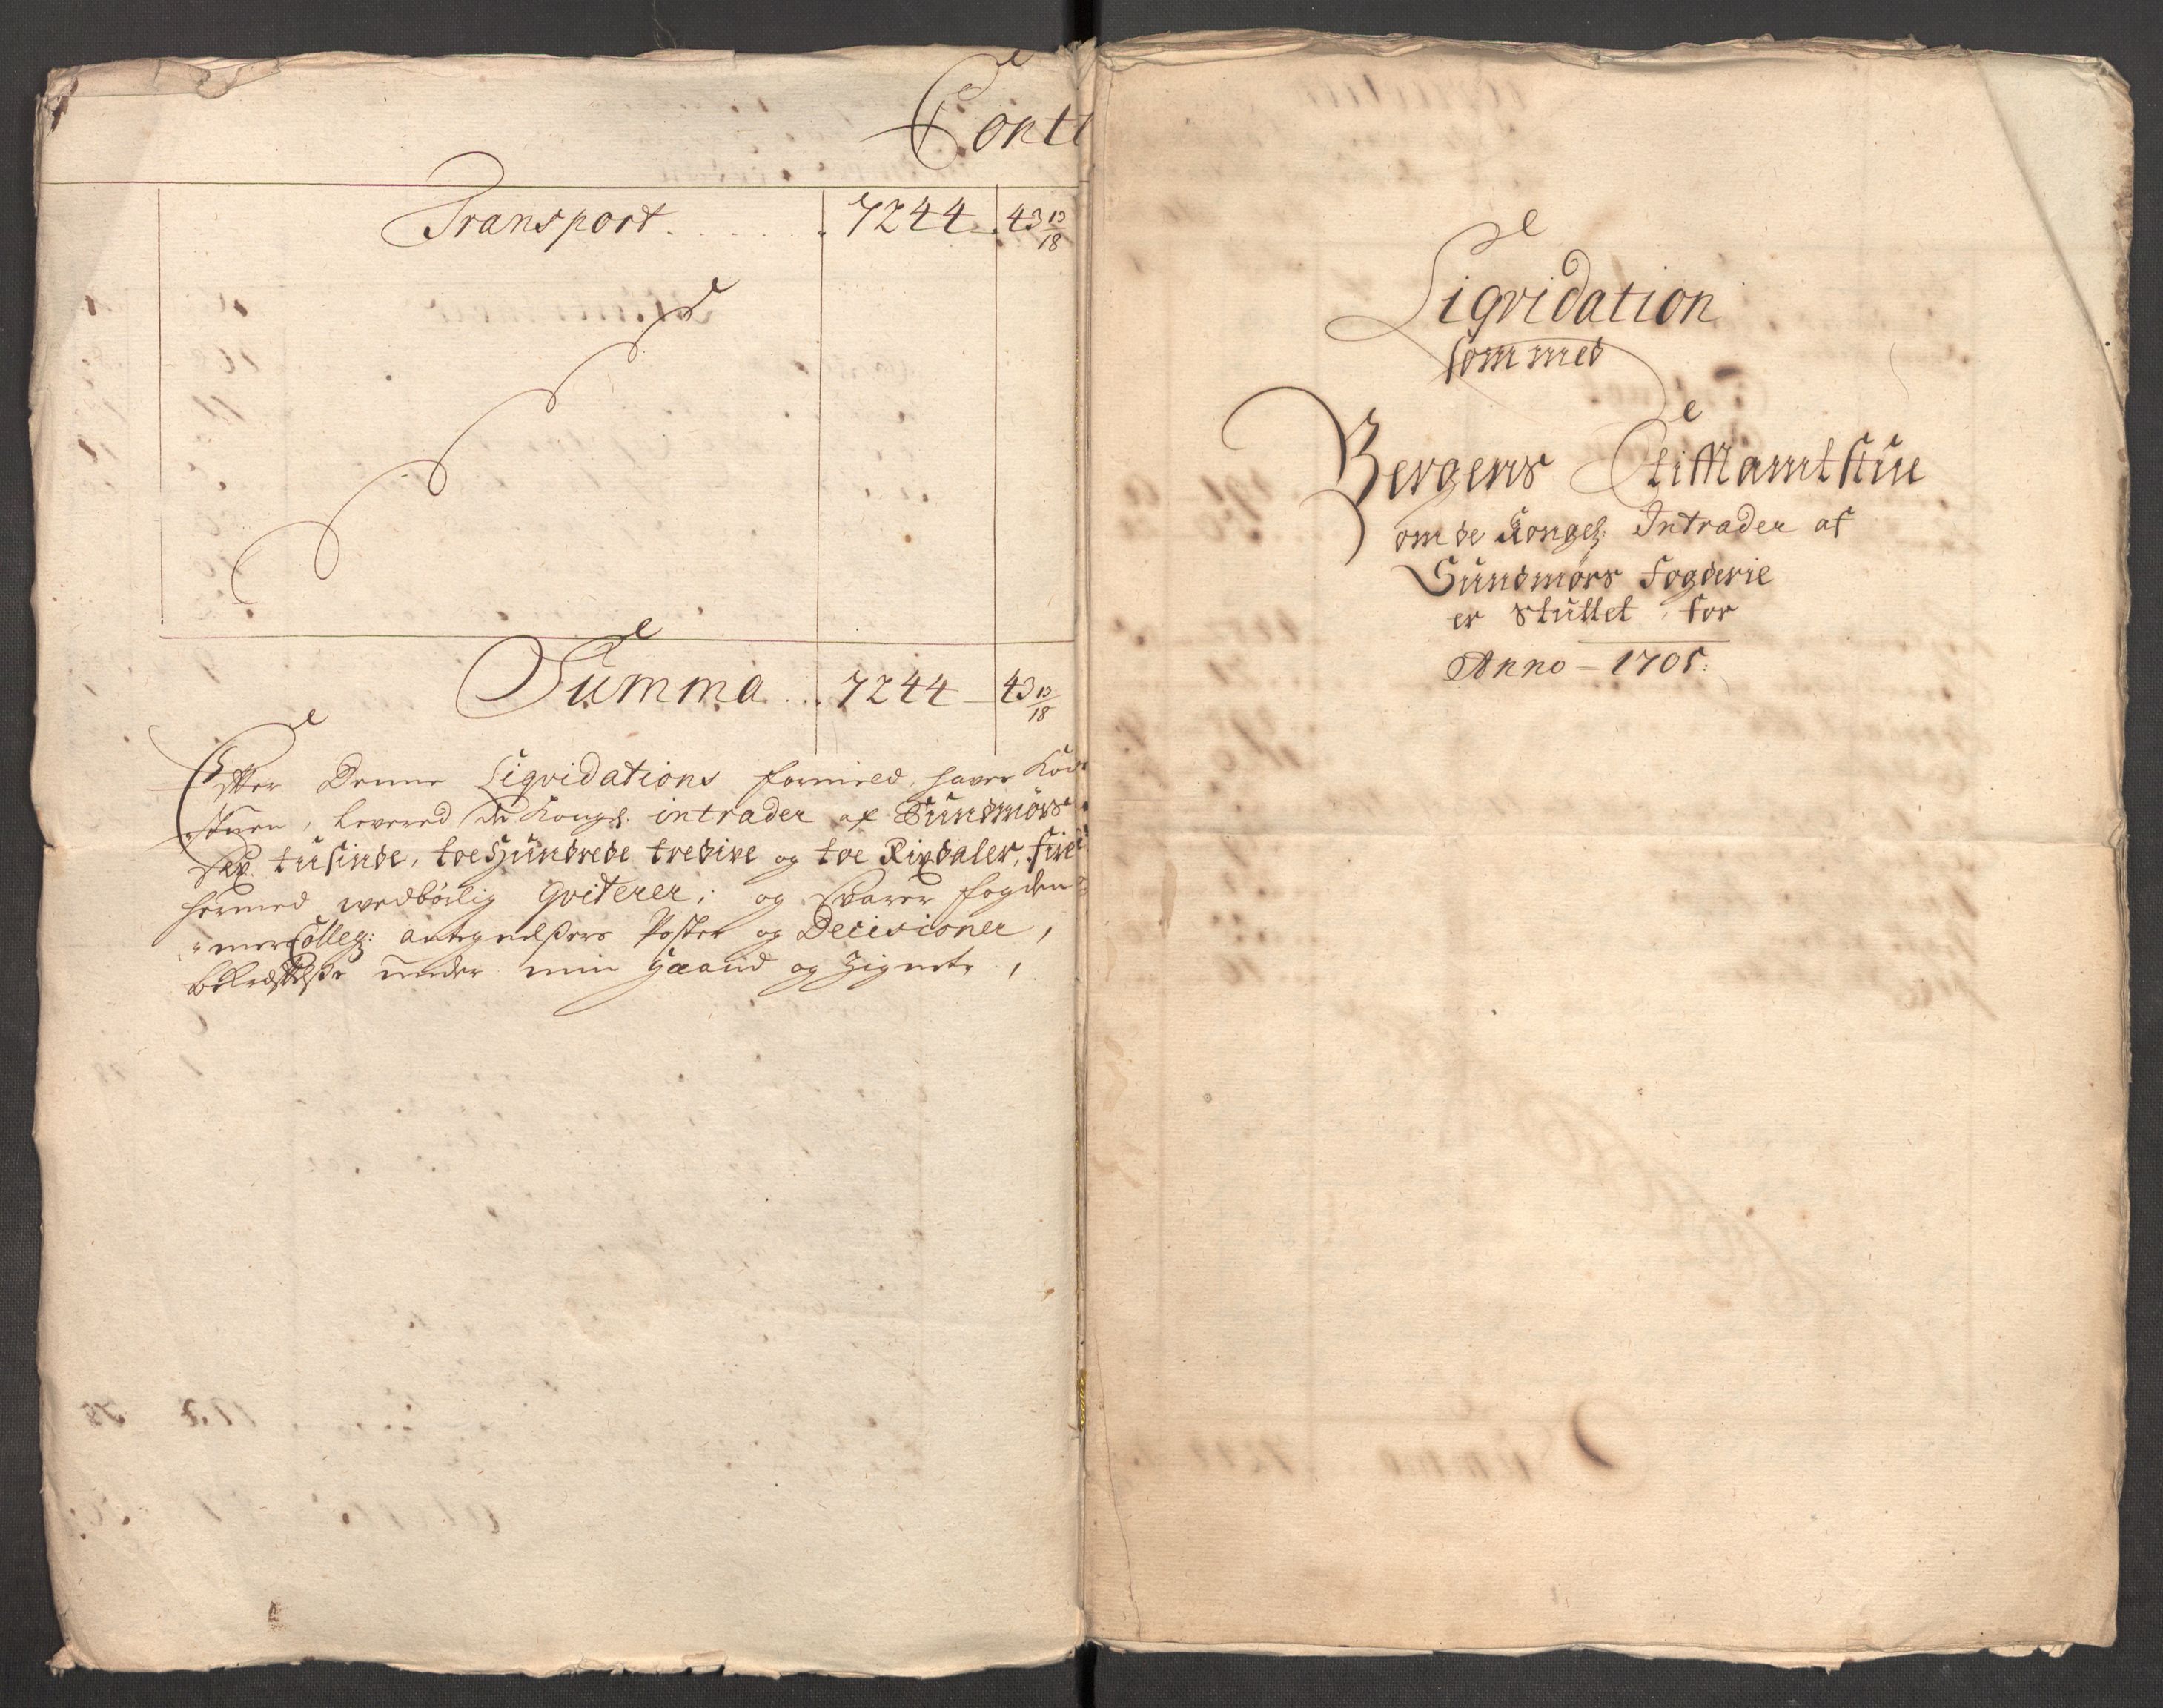 Cont
Transport . . . . . . 7244 . 43 13/18
Summa . . . 7244 — 43 13/18
Effter Denne Liqvidations formeld, haver
stuen, levered de Kongl. intrader af Sundmörs
Sex tusinde, toe Hundrede tredive og toe Rixdaler, fire
hermed wedbörlig qviterer; og Svarer fogden
merColleg: antegnelßers Poster og Decisioner,
bekræfftelße under min Haand og Zignete,
Liqvidation
som med
Bergens Stifftamtstue
om de Kongel: Intrader af
Sundmörs fogderie
er sluttet for
Anno — 1705: